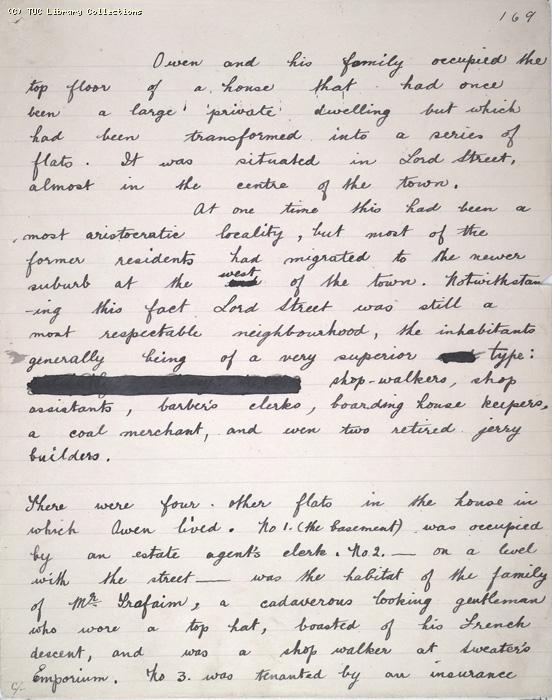 (C) TUC Library Collections
169
Owen and his family occupied the
top floor of a house that had once
been a large private dwelling but which
had been transformed into a series of
flats. It was situated in Lord Street,
almost in the centre of the town.
At one time this had been a
most aristocratic locality, but most of the
former residents had migrated to the newer
suburb at the west of the town. Notwithstan
-ing this fact Lord Street was still a
most respectable neighbourhood, the inhabitants
generally being of a very superior type:
shop-walkers, shop
assistants, barber's clerks, boarding house keepers,
a coal merchant, and even two retired jerry
builders.
There were four other flats in the house in
which Owen lived. No 1. (the basement) was occupied
by an estate agent's clerk. No 2. — on a level
with the street — was the habitat of the family
of Mr Trafaim, a cadaverous looking gentleman
who wore a top hat, boasted of his French
descent, and was a shop walker at Sweater's
Emporium. No 3. was tenanted by an insurance